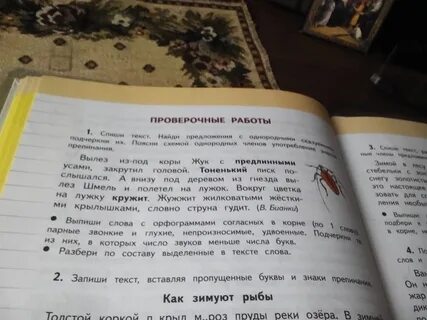 ПРОВЕРОЧНЫЕ РАБОТЫ
1. Спиши текст. Найди предложения с однородными
подчеркни их. Поясни схемой однородных членов употребление
препинания.
Вылез из-под коры Жук с предлинными
усами, закрутил головой. Тоненький писк
слышался. А внизу под деревом из гнезда
вылез Шмель и полетел на лужок. Вокруг цветка
на лужку кружит. Жужжит жилковатыми жёстки-
ми крылышками, словно струна гудит. (В. Бианки)
• Выпиши слова с орфограммами согласных в корне (по 1 слову):
парные звонкие и глухие, непроизносимые, удвоенные. Подчеркни те
из них, в которых число звуков меньше числа букв.
• Разбери по составу выделенные в тексте слова.
2. Запиши текст, вставляя пропущенные буквы и знаки препинания.
Как зимуют рыбы
Толстой коркой п крыл м..роз пруды реки озёра. В
3. Спиши
Зимой в
стебельки с
снегу
это настоящие
для
4.